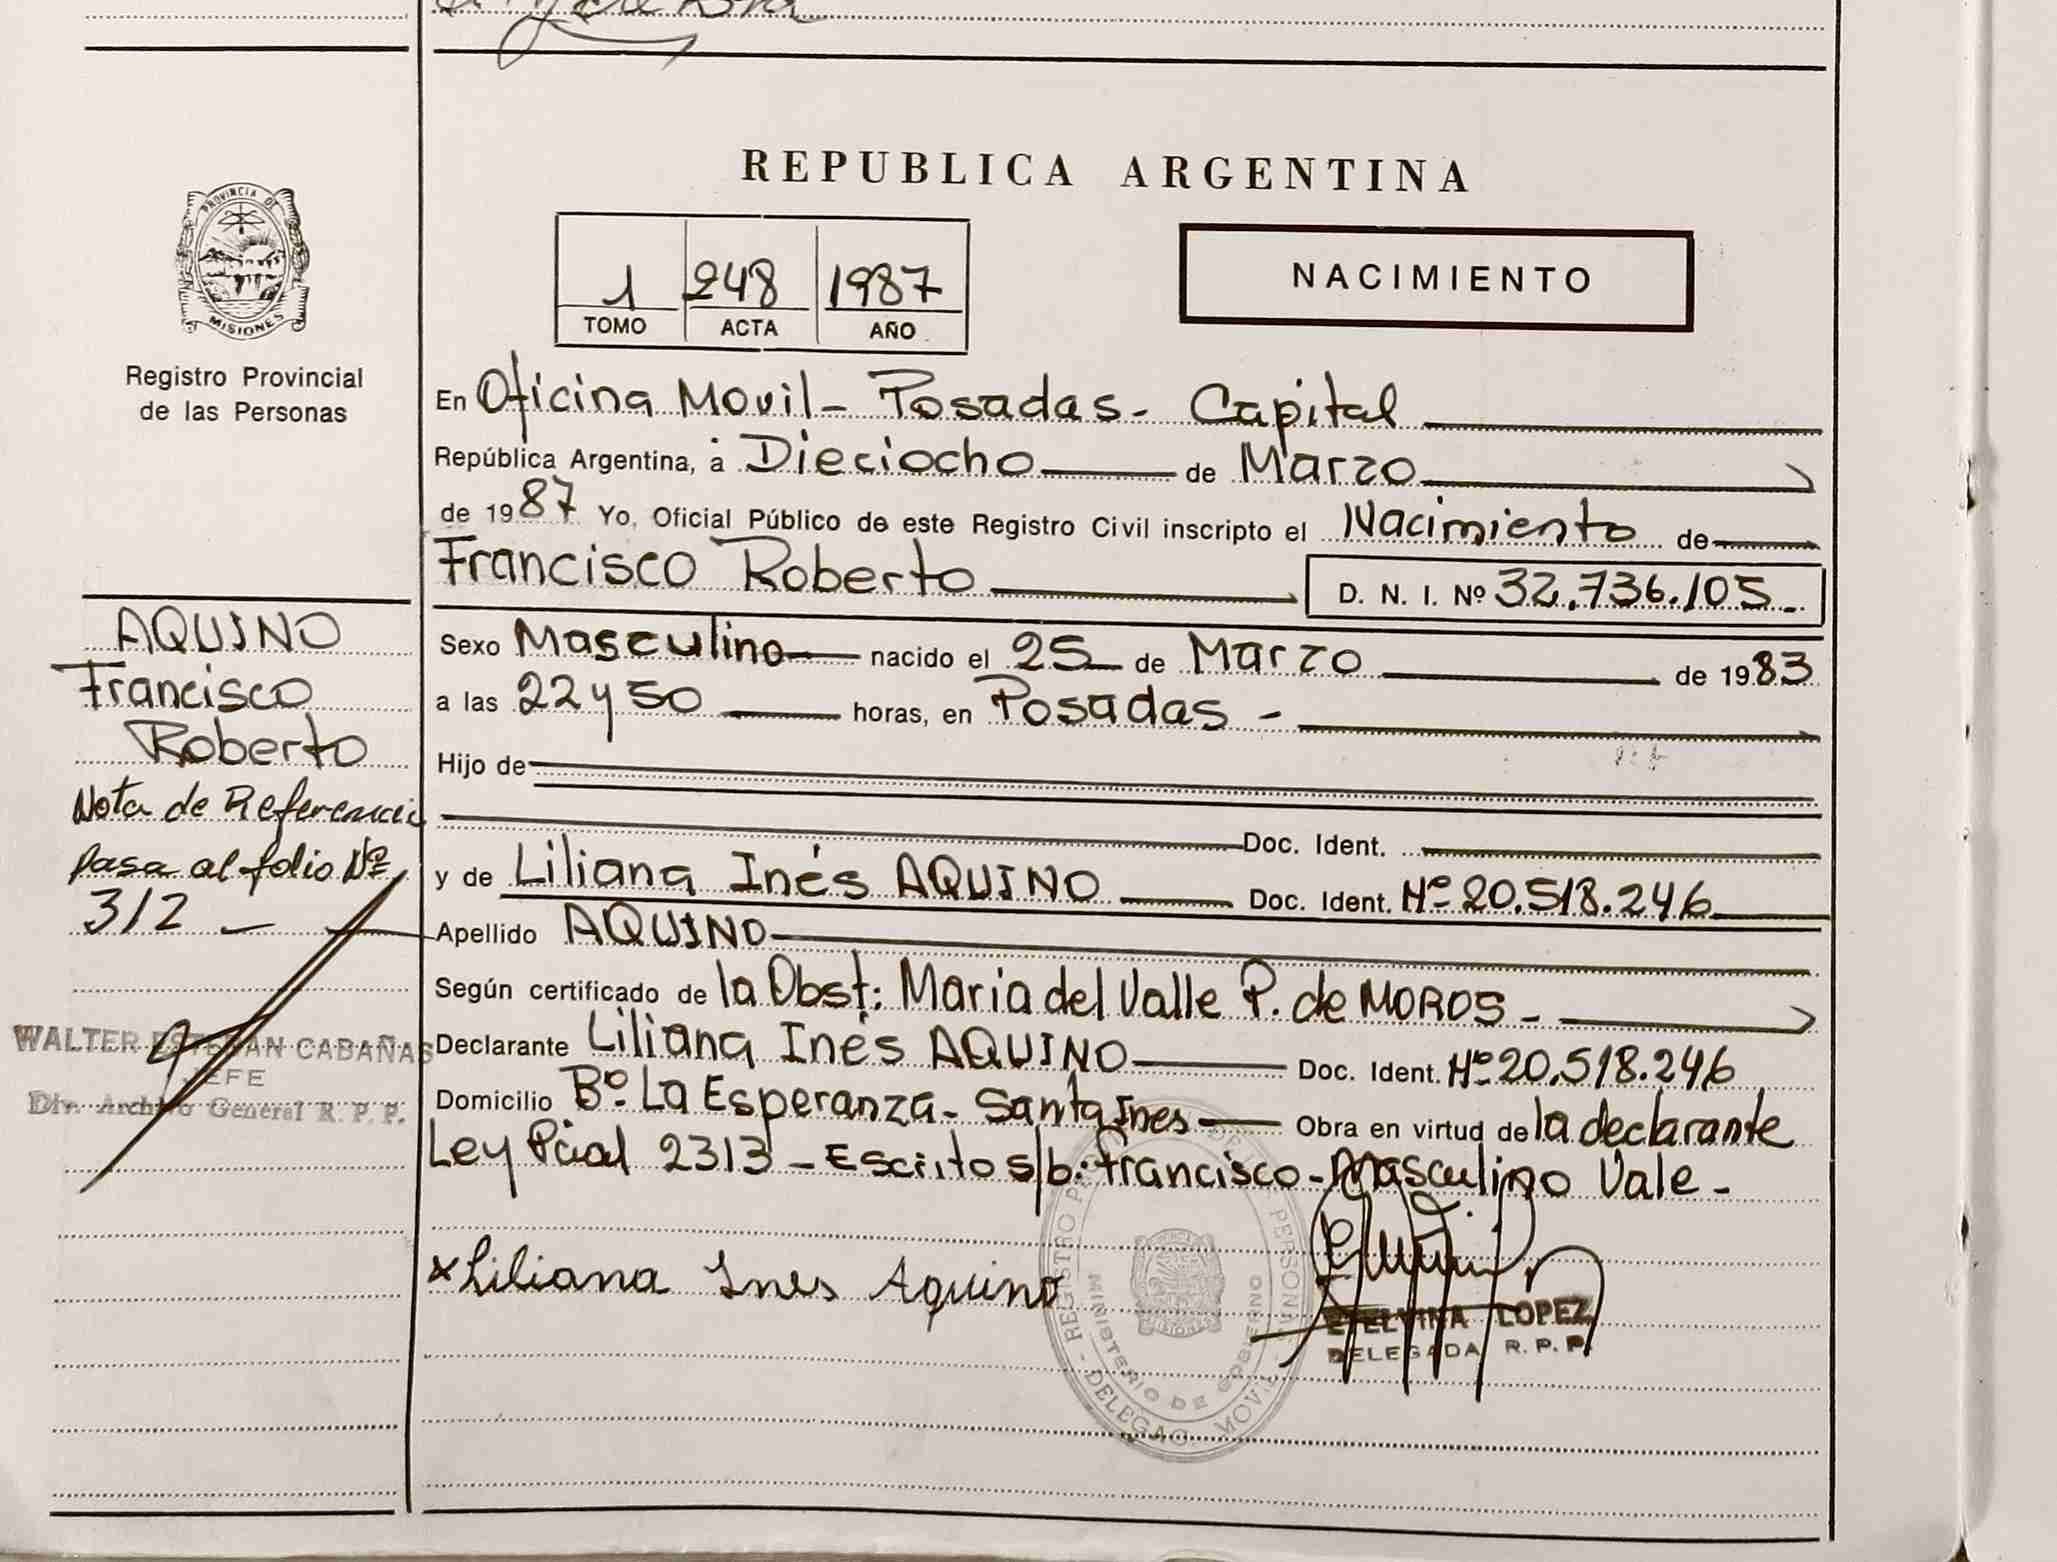 REPUBLICA ARGENTINA
PROVINCIA DE
MISIONES
Registro Provincial
de las Personas
1 248 1987
TOMO ACTA AÑO
NACIMIENTO
En Oficina Movil - Posadas - Capital
República Argentina, a Dieciocho de Marzo
de 1987 Yo, Oficial Público de este Registro Civil inscripto el Nacimiento de
Francisco Roberto D. N. I. Nº 32.736.105
Sexo Masculino nacido el 25 de Marzo de 1983
a las 22 y 50 horas, en Posadas -
Hijo de
Doc. Ident.
y de Liliana Inés AQUINO Doc. Ident. Nº 20.518.246
Apellido AQUINO
Según certificado de la Obst: Maria del Valle P. de MOROS -
Declarante Liliana Inés AQUINO Doc. Ident. Nº 20.518.246
Domicilio Bº La Esperanza - Santa Ines Obra en virtud de la declarante
Ley Pcial 2313 - Escrito s/b: Francisco - Masculino Vale -
x Liliana Ines Aquino
ELVINA LOPEZ
DELEGADA R. P. P.
REGISTRO PERSONAS
MINISTERIO DE GOBIERNO
DELEGAC. MOVIL
AQUINO
Francisco
Roberto
Nota de Referencia
pasa al folio Nº
312 -
WALTER ESTEBAN CABAÑAS
JEFE
Div. Archivo General R. P. P.